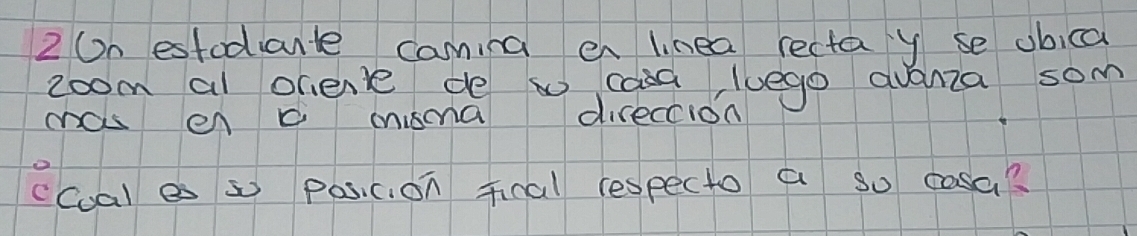 2 Un estudiante camina en linea recta y se ubica
200m al oriente de su casa, luego avanza 50m
mas en la misma dirección
¿Cual es su posición final respecto a su casa?